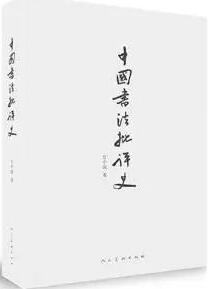 中國書法批評史
人民美術出版社